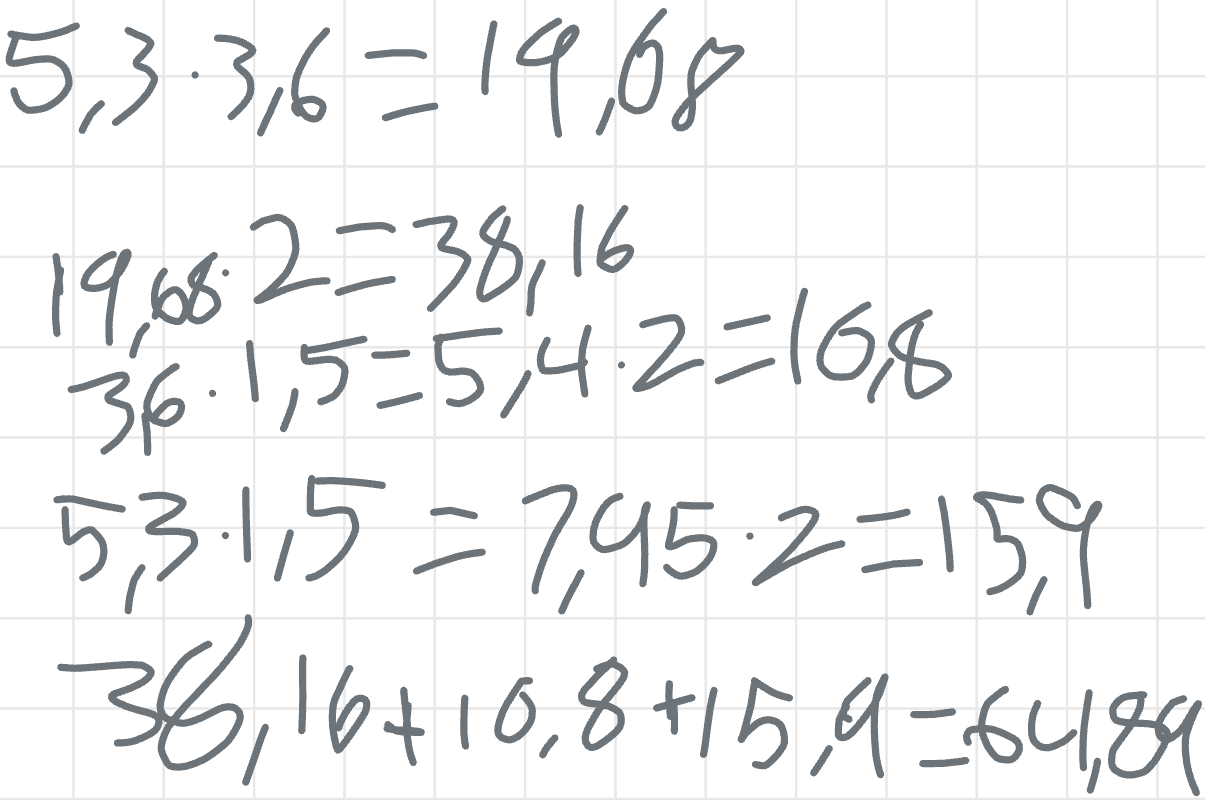 5,3·3,6=19,08
19,08·2=38,16
3,6·1,5=5,4·2=10,8
5,3·1,5=7,95·2=15,9
38,16+10,8+15,9=64,89